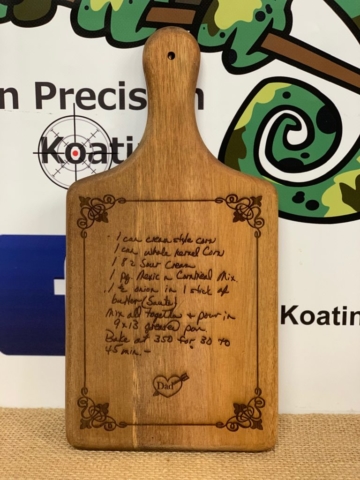 n Precision
Koati
Koatin
Koatin
1 can cream style corn
1 can whole kernel corn
1 8 z Sour Cream
1 pg. Mexican Cornmeal Mix
1 onion in 1 stick of
butter (Saute)
Mix all together & pour in
9x13 greased pan
Bake at 350 for 30 to
45 min -
Dad